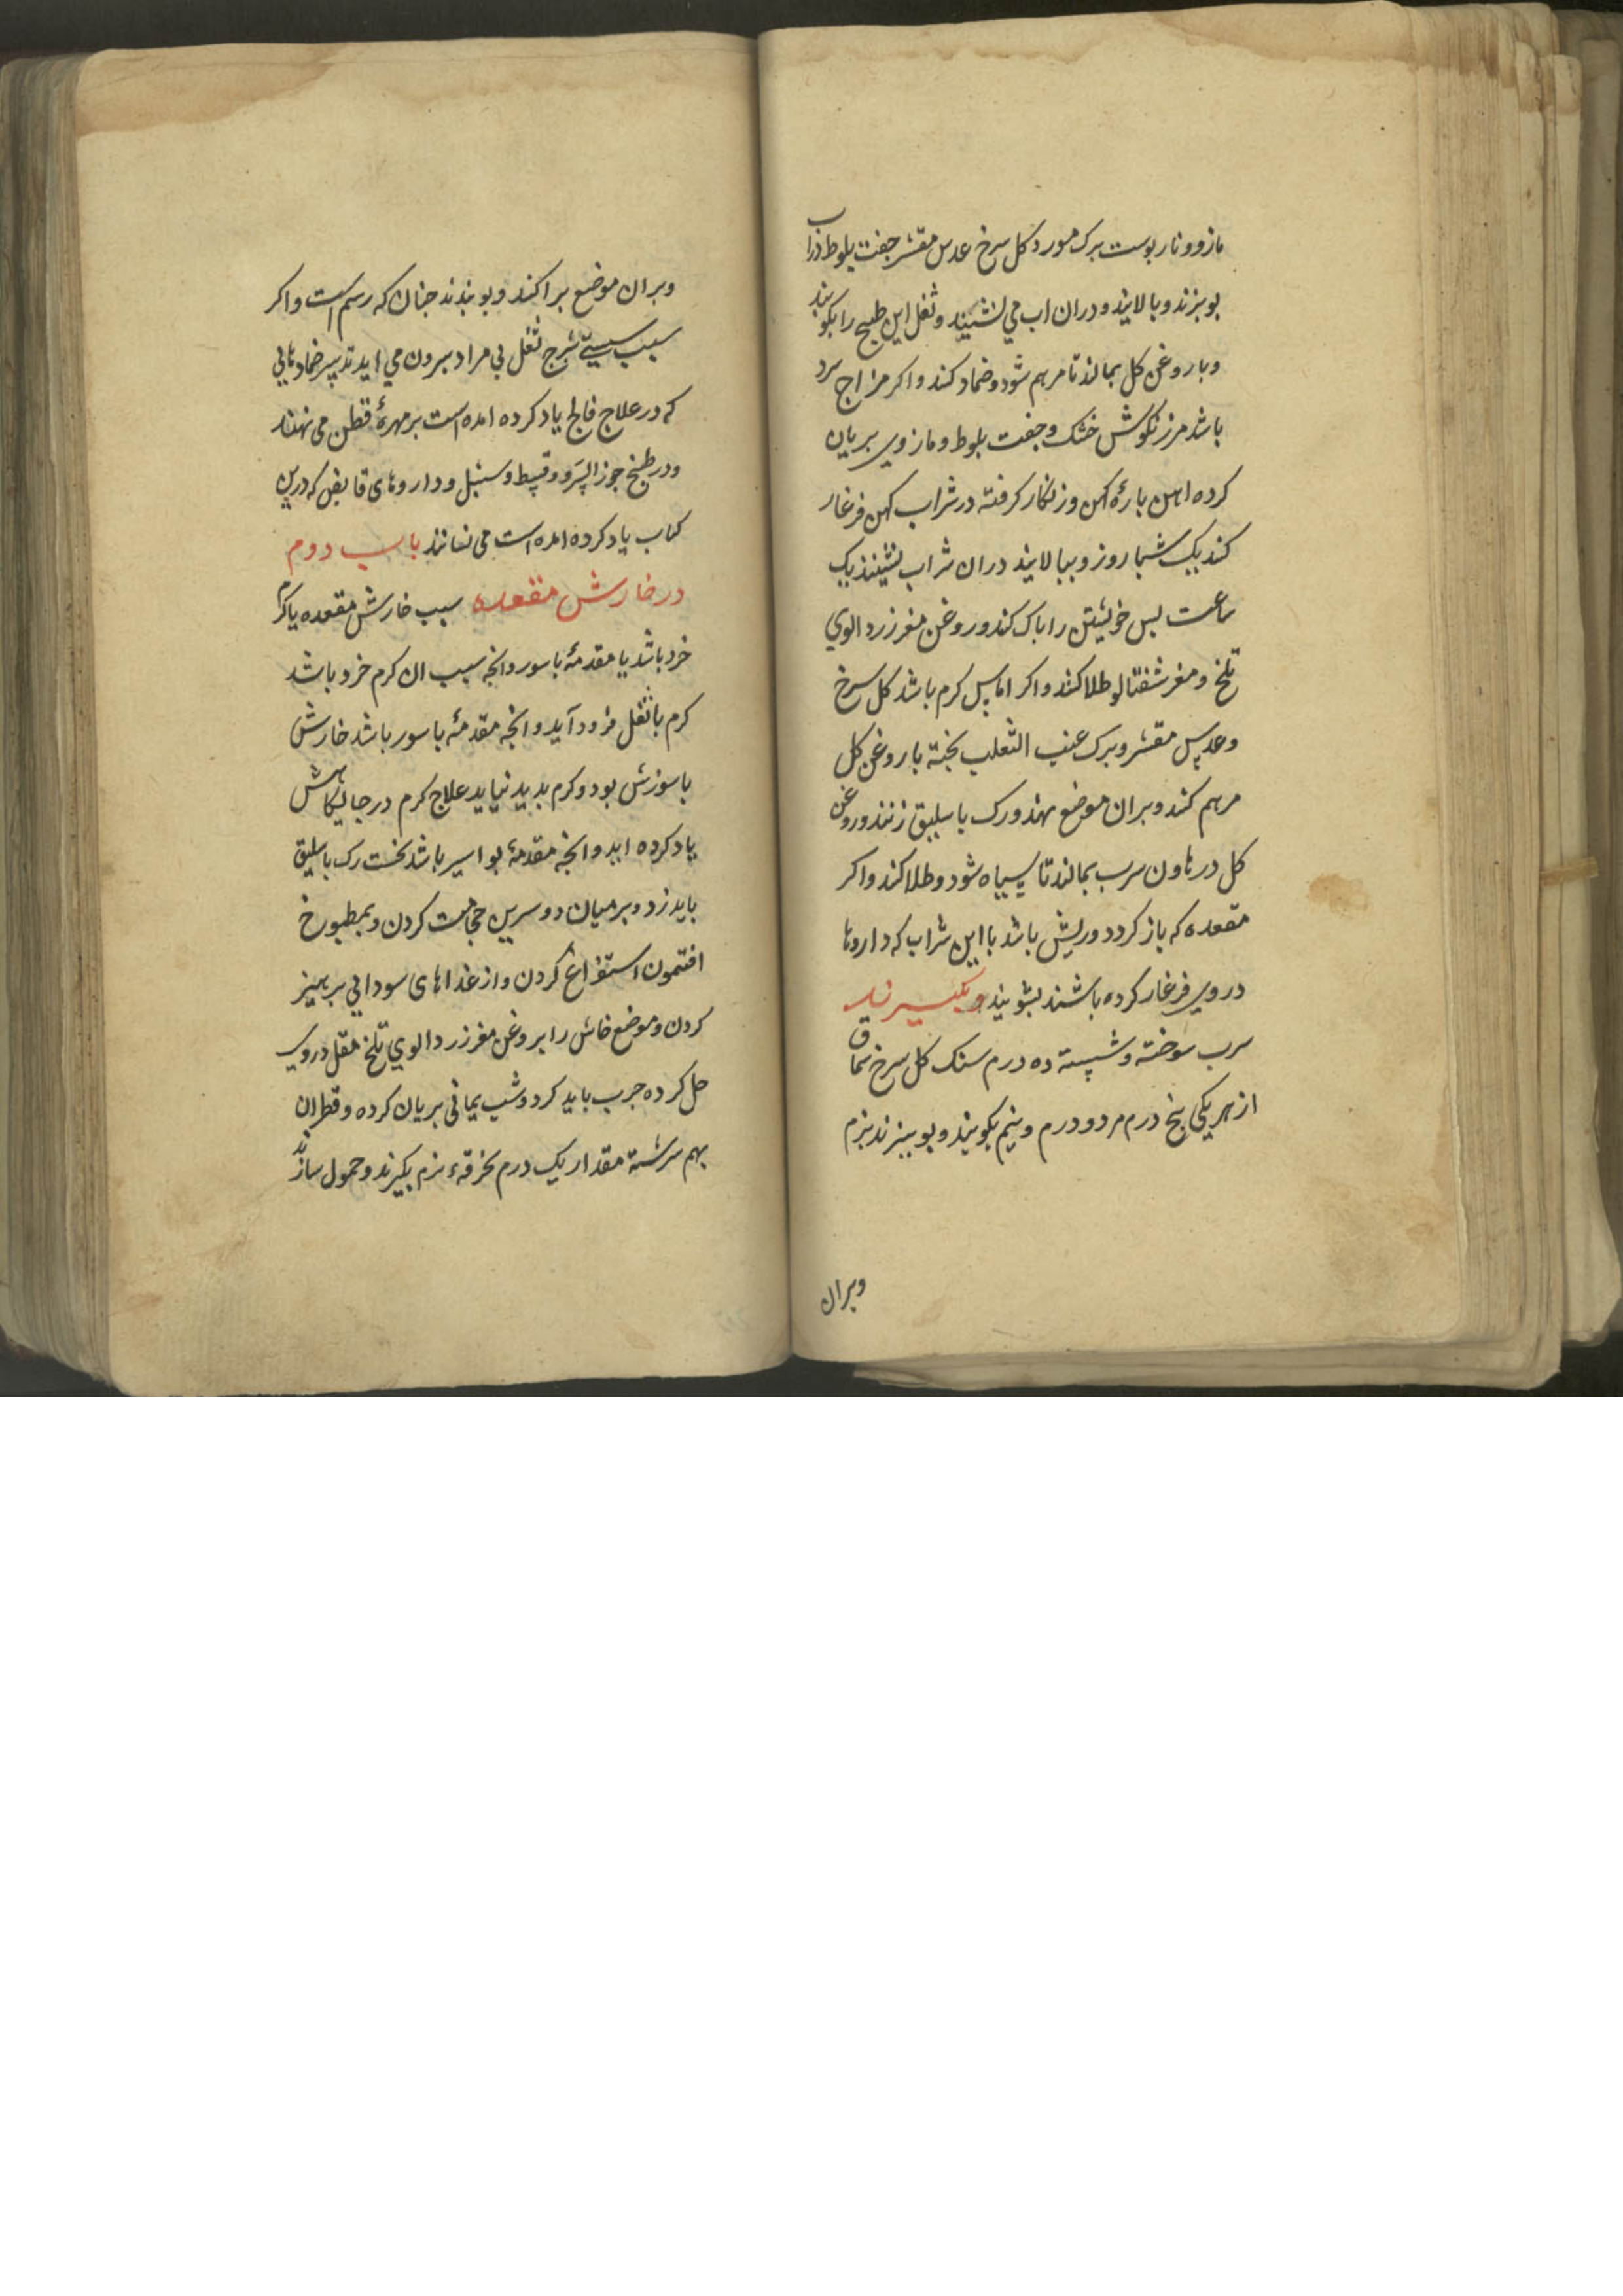 مازو و نار پوست برک مورد کل سرخ عدس مقشر جفت بلوط در آب
بوبزند و بالایند و دران اب می نشیند و ثفل این طبیخ را بکوبند
و با روغن کل بمالند تا مرهم شود و ضماد کند و اکر مزاج سرد
باشد مرزنکوش خشک و جفت بلوط و مازوی بریان
کرده اهن بارهٔ کهن و زنکار کرفته در شراب کهن فرغار
کند یک شبا روز و ببالایند دران شراب نشینند یک
ساعت بس خویشتن را باک کند و روغن مغز زردالوی
تلخ و مغز شفتالو طلا کند و اکر اماس کرم باشد کل سرخ
و عدس مقشر و برک عنب الثعلب بخته با روغن کل
مرهم کند و بران موضع نهند و رک باسلیق زنند و روغن
کل در هاون سرب بمالند تا سیاه شود و طلا کند و اکر
مقعده که باز کردد و ریش باشد با این شراب که داروها
در وی فرغار کرده باشند بشویند و بکیرند
سرب سوخته و شسته ده درم سنک کل سرخ سماق
از هر یکی بنج درم مر دو درم و نیم بکویند و بوبیزند بزم
وبران
وبران موضع براکند و بوبندند جنان که رسم است و اکر
سبب سستی شرج ثفل بی مراد بیرون می اید تدبیر ضمادهایی
که در علاج فالج یاد کرده امده است بر مهرهٔ قطن می نهند
و در طبخ جوز السرو و قسط و سنبل و داروهای قابض که درین
کتاب یاد کرده امده است می نشانند باب دوم
در خارش مقعده سبب خارش مقعده یا کرم
خرد باشد یا مقدمهٔ باسور وانجه سبب ان کرم خرد باشد
کرم با ثفل فرود آید و انجه مقدمهٔ باسور باشد خارش
با سوزش بود و کرم بدید نیاید علاج کرم در جایکاهش
یاد کرده اید و انجه مقدمهٔ بواسیر باشد نخست رک باسلیق
باید زد و بر میان دو سرین حجامت کردن و بمطبوخ
افتمون استفراغ کردن و از غذاهای سودایی برهیز
کردن و موضع خاش را بروغن مغز زردالوی تلخ مقل در وی
حل کرده جرب باید کرد و شب یمانی بریان کرده و قطران
بهم سرشته مقدار یک درم بخرقهٔ نرم بکیرند و حمول سازند